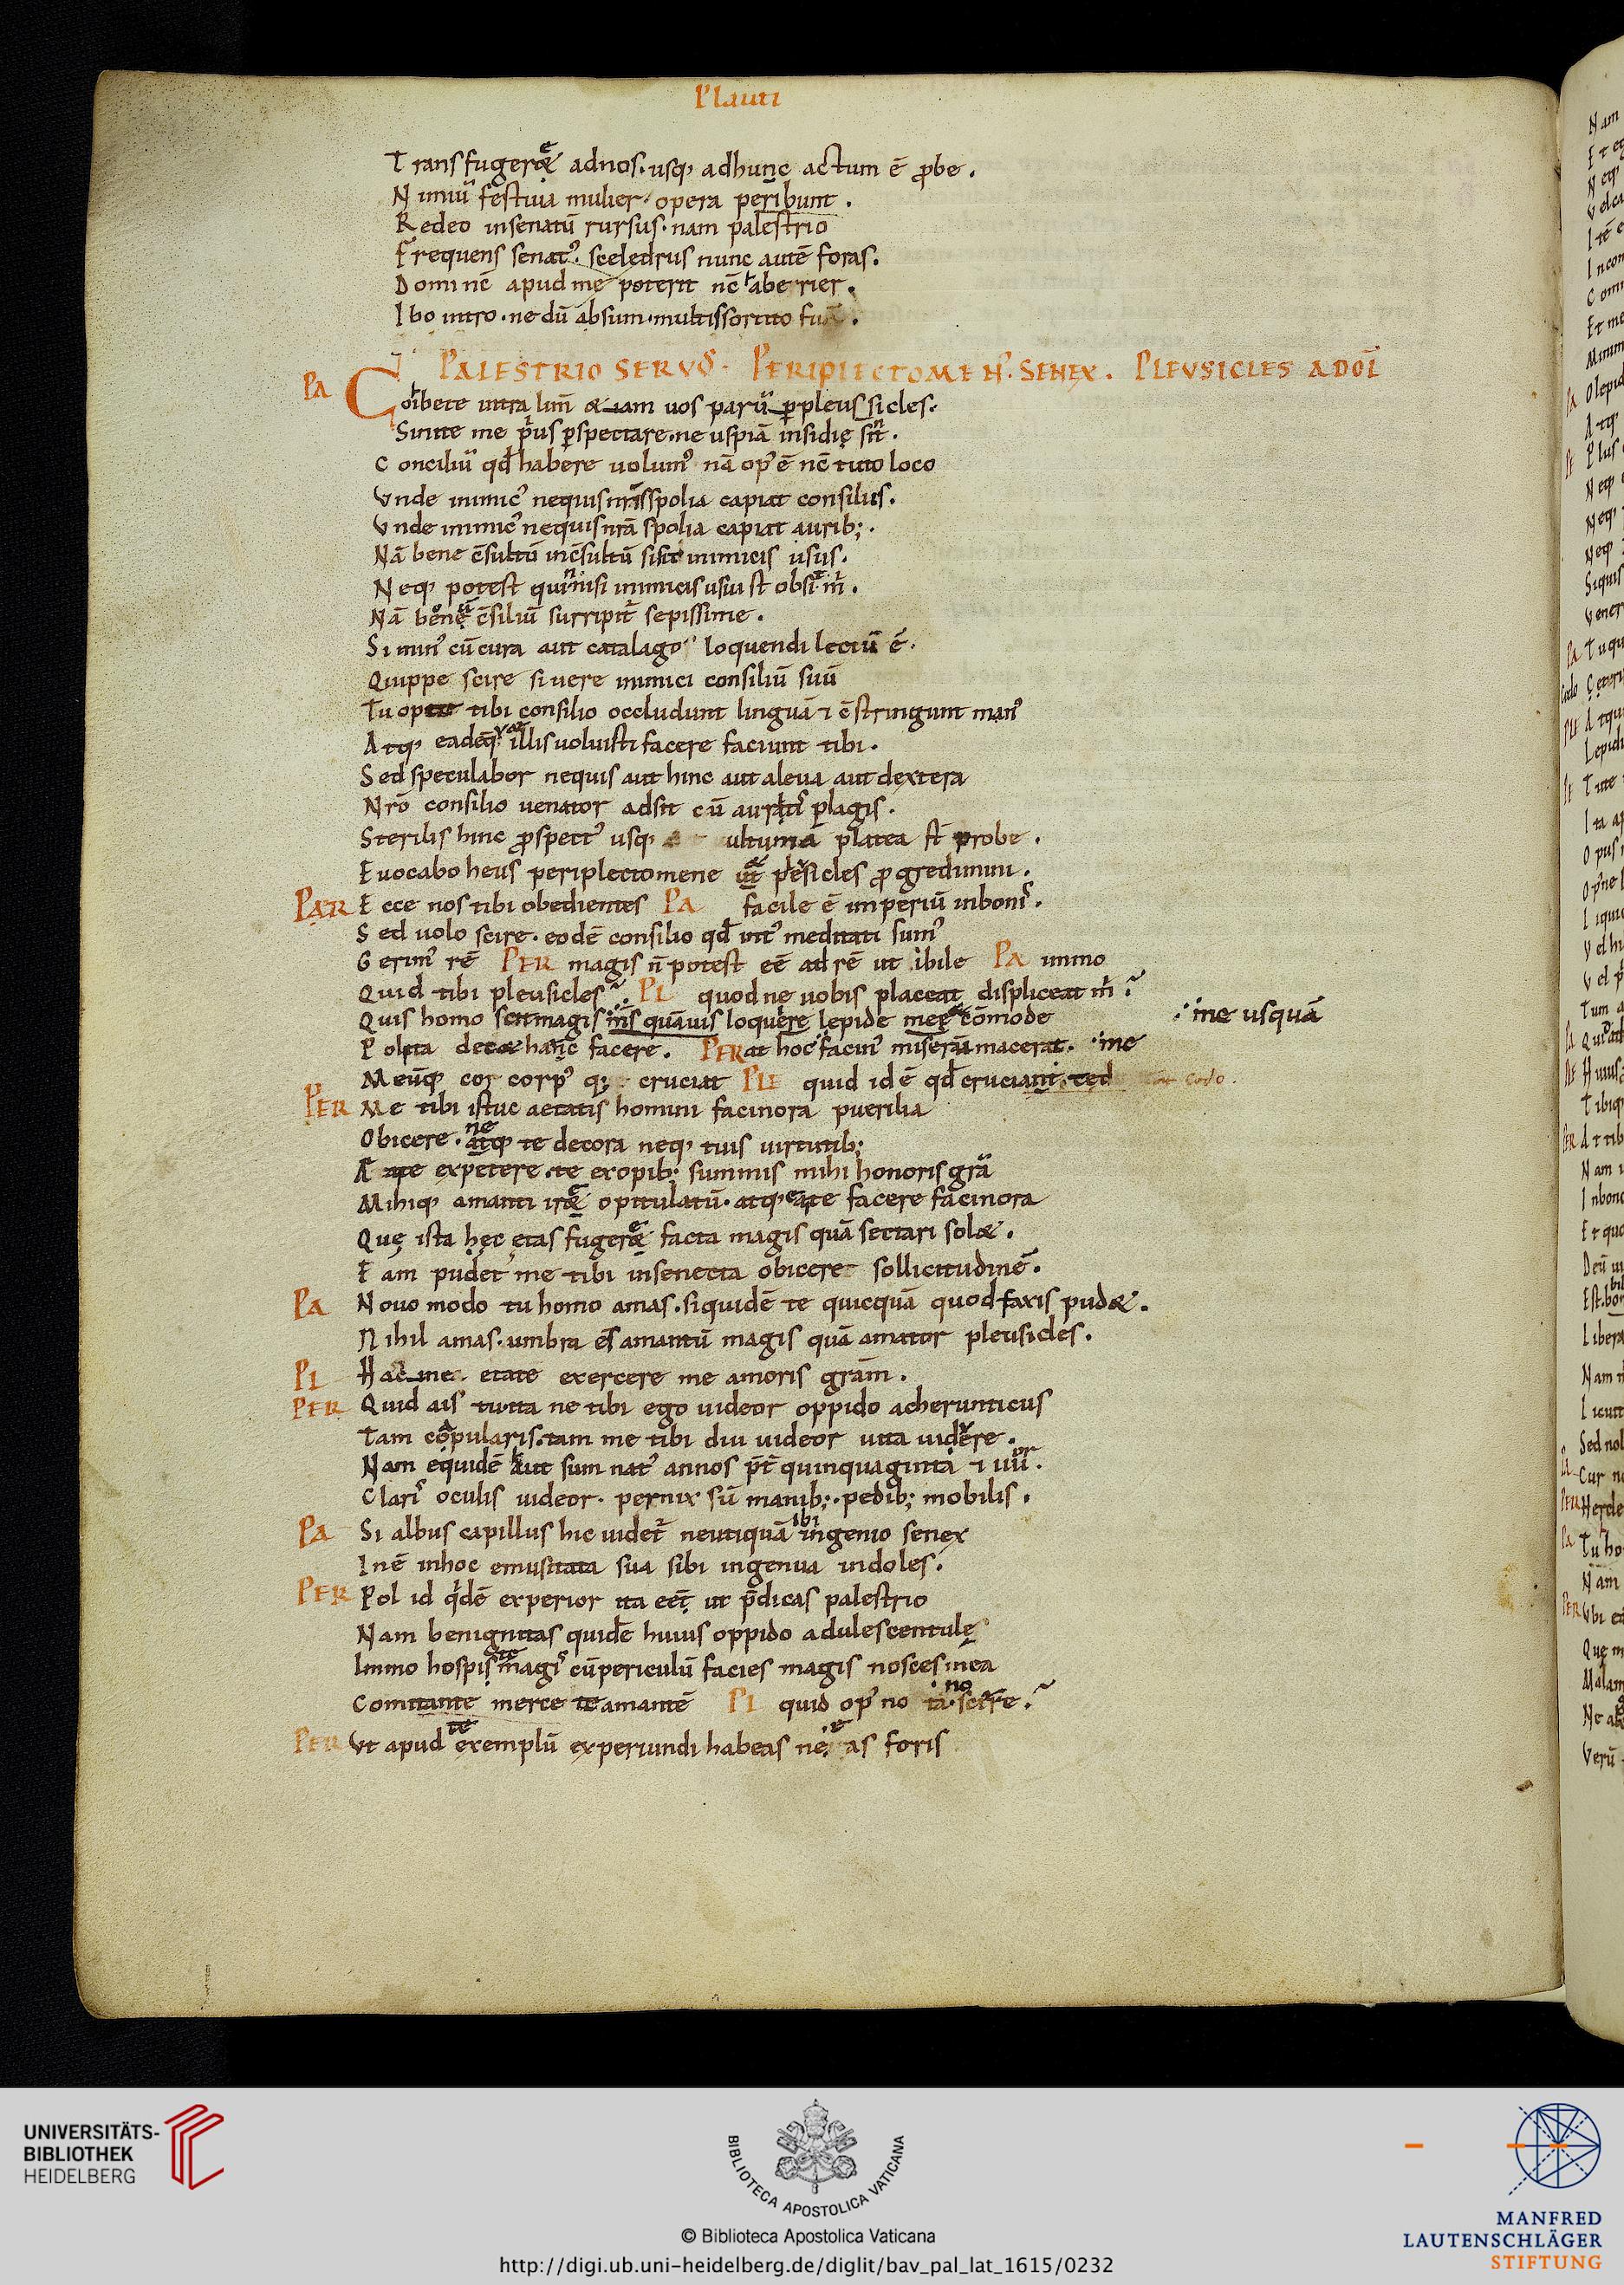 Plauti
Transfugeræ adnos. usq; adhunc actum ē ꝓbe.
Nimiū festiuia mulier opera peribunt.
Redeo insenatū rursus. nam palestrio
Frequens senatꝰ. sceledrus nunc autē foras.
Domi nē apud me poterit nē aberrier.
Ibo intro. ne dū absum. multissortito
PALESTRIO SERVꝰ. PERIPLECTOMEN'. SENEX. PLEVSICLES ADOL̄
PA Cohibete intra lim̄ & iam uos parū ꝑpleussicles.
Sinite me pius ꝑspectare. ne uspiā insidię sint.
Conciliū qđ habere uolumꝰ nā opꝰ ē nē tuto loco
Vnde inimicꝰ nequis nr̄is spolia capiat consiliis.
Vnde inimicꝰ nequis nrā spolia capiat aurib;.
Nā bene c̄sultū inc̄sultū sisit inimicis usus.
Neq; potest quin nisi inimicis usui st obsit m̄.
Nā bene c̄siliū surripit̄ sepissime.
Si minꝰ cū cura aut catalago loquendi lectū ē.
Quippe scire si uere inimici consiliū suū
Tuopte tibi consilio occludunt linguā ⁊ c̄stringunt manꝰ
Atq; eadēq; illis uoluisti facere faciunt tibi.
Sed speculabor nequis aut hinc aut aleua aut dextera
Nrō consilio uenator adsit cū auritis plagis.
Sterilis hinc ꝓspectꝰ usq; ultumā platea st̄ probe.
Euocabo heus periplectomene & plesicles ꝓgredimini.
PAER Ecce nos tibi obedientes PA facile ē imperiū inbonis.
Sed uolo scire. eodē consilio qđ intꝰ meditati sumꝰ
Gerimꝰ rē PER magis n̄ potest eē ad rē ut ibile PA immo
Quid tibi pleusicles? PL quod ne uobis placeat displiceat m̄?
Quis homo sit magis m̄s quāuis loquere lepide meę cōmode ∴ me usquā
Polita decæ hanc facere. PER at hoc facinꝰ miserū macerat. ∴me
Meūq; cor corpꝰ q; cruciat PLE quid id ē qđ cruciant. ced
PER Me tibi istuc aetatis homini facinora puerilia
Obicere. ne atq; te decora neq; tuis uirtutib;
A te expetere. te exopib; summis mihi honoris grā
Mihiq; amanti iræ opitulatū. atq; eate facere facinora
Quę ista hęc etas fugeræ facta magis quā sectari solæ.
Eam pudet me tibi insenecta obicere sollicitudinē.
PA Nouo modo tu homo amas. siquidē te quicquā quod faxis pudæ.
Nihil amas. umbra es amantū magis quā amator pleusicles.
PL Hac me etate exercere me amoris gram̄.
PER Quid ais tuitta ne tibi ego uideor oppido acherunticus
Tam capularis. tam me tibi diu uideor uita uidere.
Nam equidē haut sum natꝰ annos p̄t̄ quinquaginta ⁊ iiii or.
Claris oculis uideor. pernix sū manib;. pedib; mobilis.
PA Si albus capillus hic uidet̄ neutiquā ibi ingenio senex
Inē inhoc emusitata sua sibi ingenua indoles.
PER Pol id qdē experior ita eēt ut p̄dicas palestrio
Nam benignitas quidē huius oppido adulescentulę
Immo hospis magis cū periculū facies magis nosces mea
Comitante merce te amantē PL quid opꝰ no ta scire?
PER Vt apud te exemplū experiundi habeas ne as foris
UNIVERSITÄTS-
BIBLIOTHEK
HEIDELBERG
BIBLIOTECA APOSTOLICA VATICANA
© Biblioteca Apostolica Vaticana
http://digi.ub.uni-heidelberg.de/diglit/bav_pal_lat_1615/0232
MANFRED
LAUTENSCHLÄGER
STIFTUNG